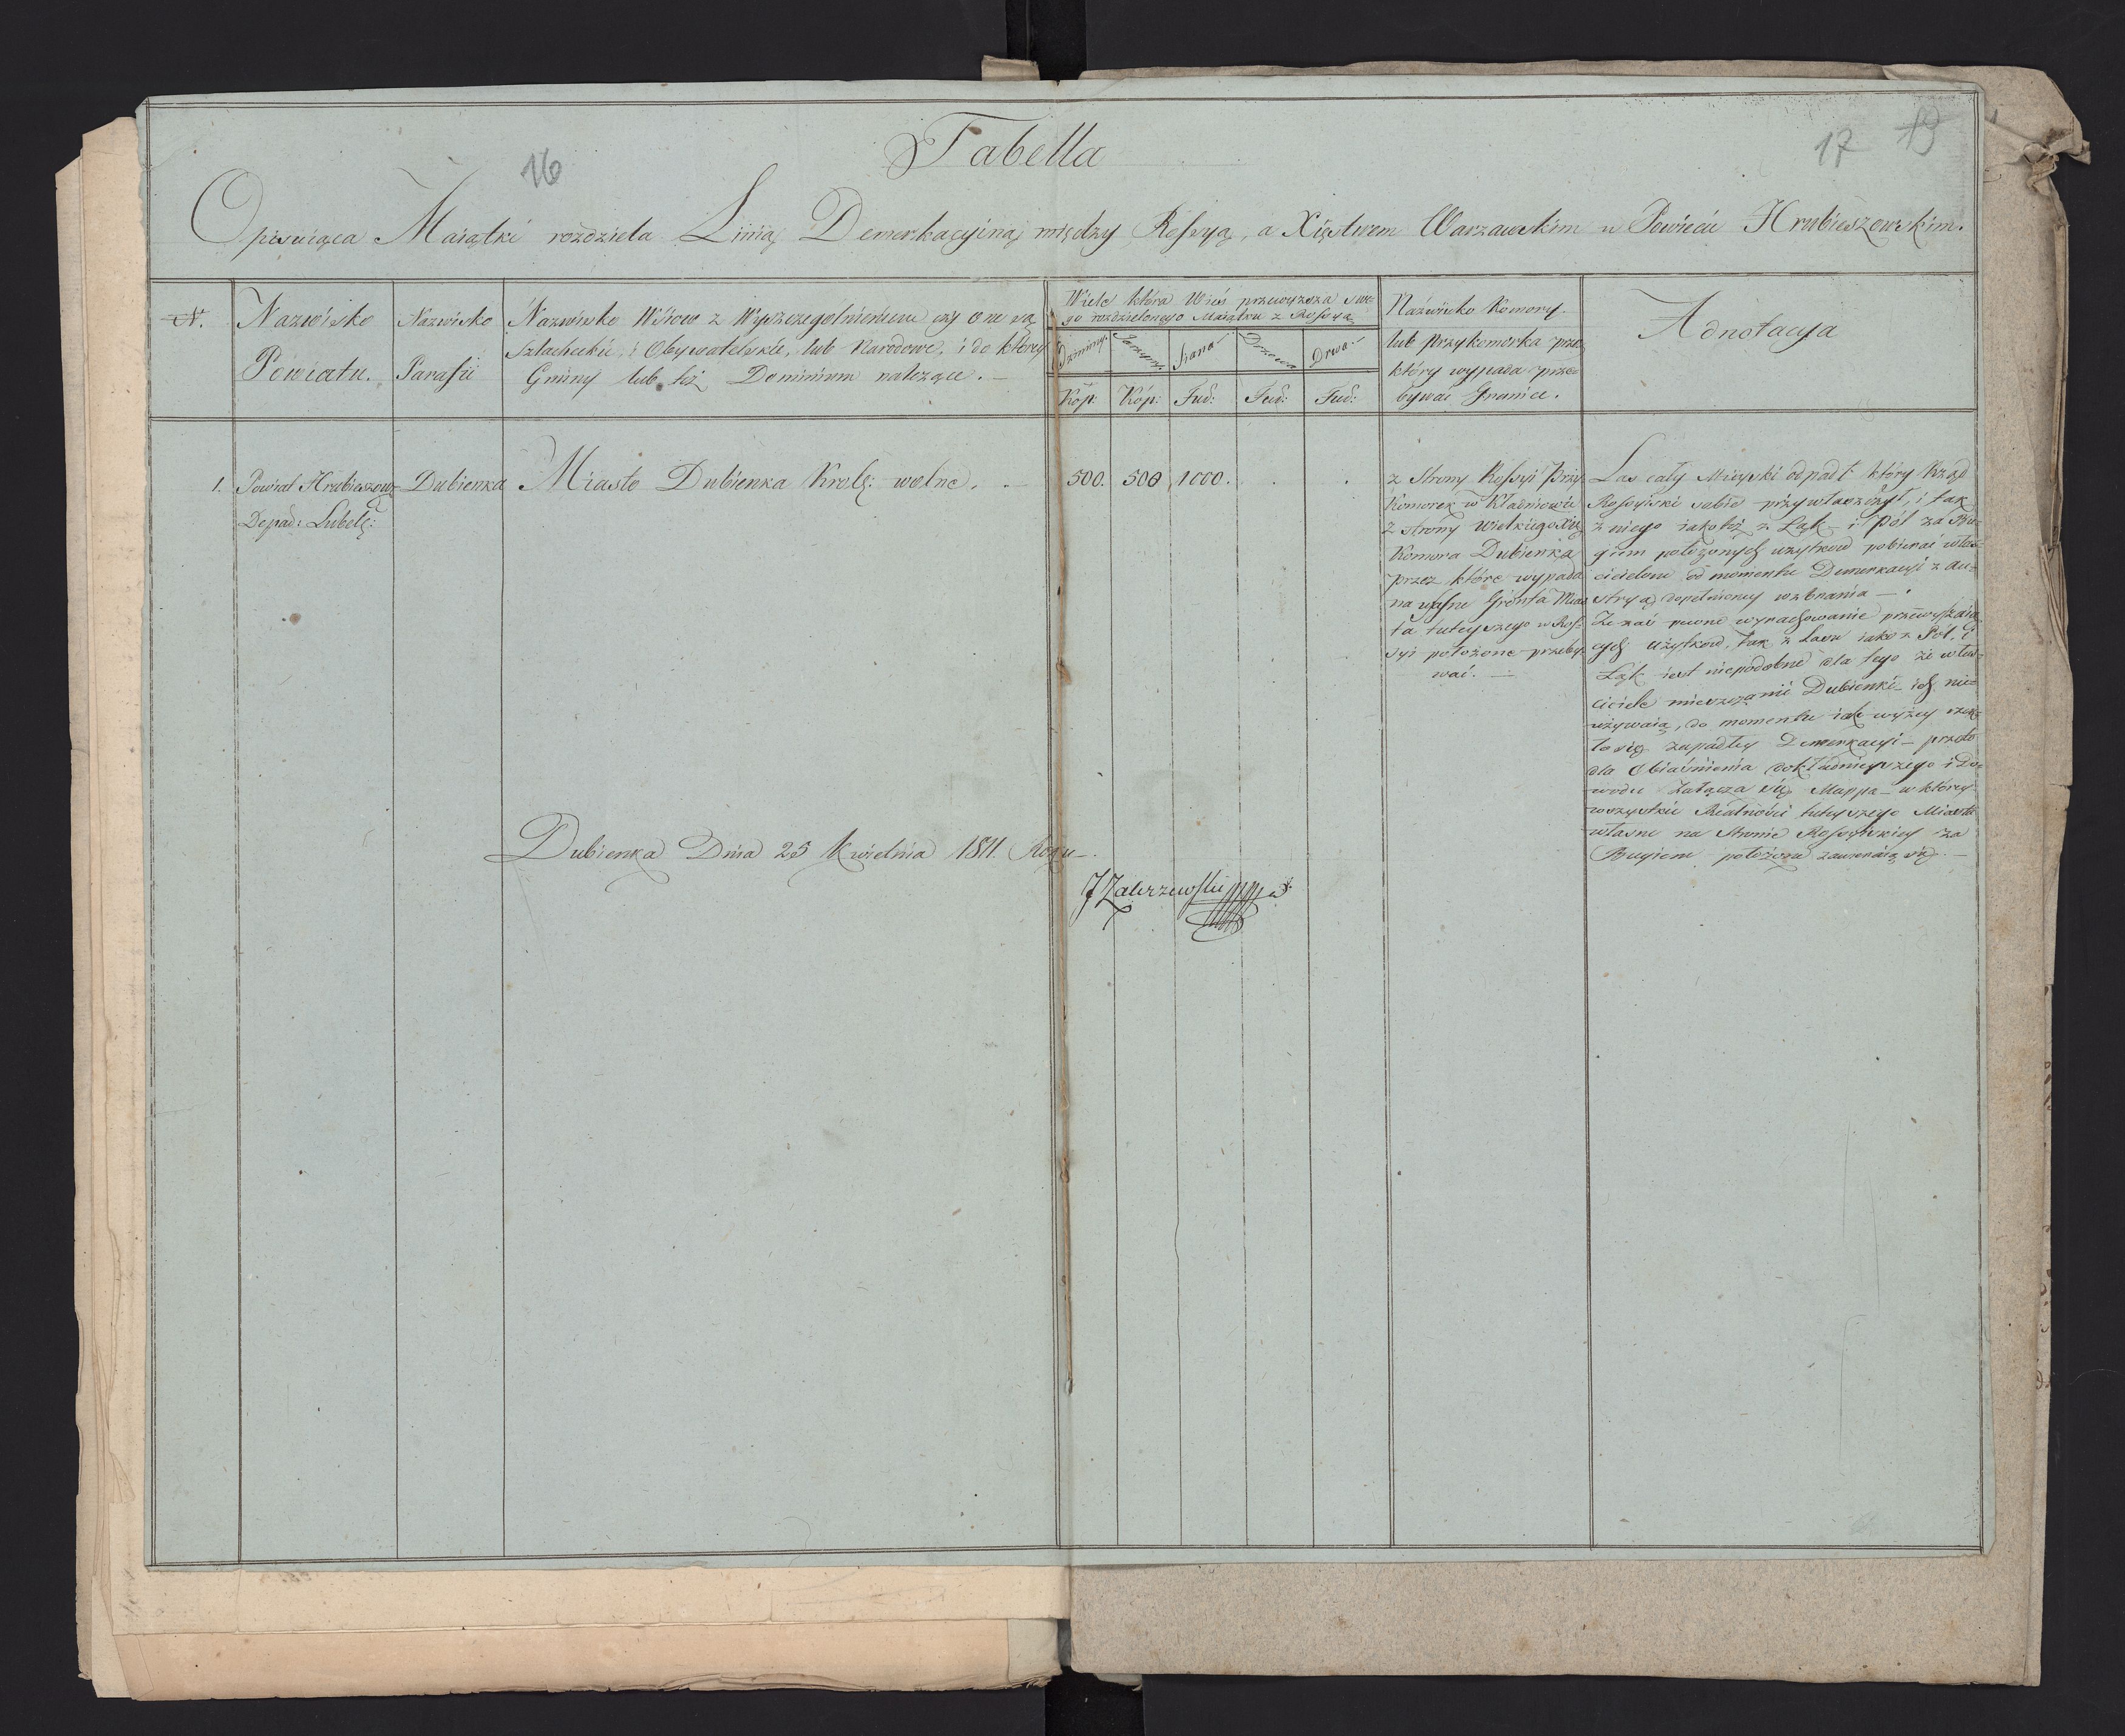 Tabella
16
17 19
Opisuiąca Maiątki rozdziela Linią Demerkacyiną między Rossyą, a Xięstwem Warzawskim w Powiecie Hrubieszowskim.
N.
Nazwisko
Powiatu.
Nazwisko
Parafii
Nazwisko Wsiow z Wyszczegolnieniem czy one są
Szlacheckie, i Obywatelskie, lub Narodowe, i do któréy
Gminy lub też Dominium należące. —
Wiele która Wieś przewyższa swe-
go rozdzielonego Maiątku z Rossyą
Oziminy.
Jarzyny.
Siana —
Drzewa
Drwa. —
Kóp:
Kóp:
Fud:
Fud:
Fud:
Nazwisko Komory
lub Przykomorka przez
który wypada prze-
bywać Granice.
Adnotacyia
1.
Powiat Hrubieszows:
Depad: Lubels:
Dubienka
Miasto Dubienka Krols: wolne. . —
500.
500
1000.
.
.
z Strony Rossyi Przy
Komorek w Kladniowie
z strony Wielkiego Xię:
Komora Dubienka
przez które wypada
na własne Gronta Mias
ta tuteyszego w Ros-
syi położone przeby-
wać. —
Las cały Mieyski odpadł który Rząd
Rossyiski sobie przywłaszczył, i tak
z niego iakoteż z Łąk i Pól za Bu-
giem położonych użytków pobierać właś-
cicielom od momentu Demerkacyi z Au-
stryą dopełnioney wzbrania — .
Ze zaś pewne wyrachowanie przewyższaią
cych użytków, tak z Lasu iako z Pól, i
Łąk iest niepodobne dla tego że właś-
ciciele mieszczanie Dubienki ich nie-
używaią, do momentu iak wyżey rzek-
ło się zapadłey Demerkacyi — przeto
dla Obiaśnienia dokładnieyszego i Do-
wodu Załącza się Mappa — w którey
wszystkie Realności tuteyszego Miasta
własne na Stronie Rossyiskiey za
Bugiem położone zawieraią się. —
Dubienka Dnia 25 Kwietnia 1811. Roku —.
J Zakrzewski